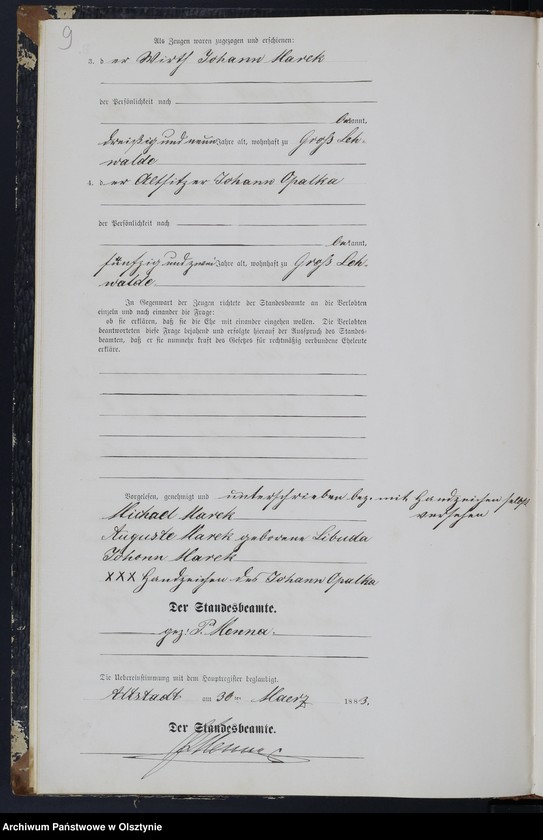 9
Als Zeugen waren zugezogen und erschienen:
3. der Wirth Johann Marek
der Persönlichkeit nach
bekannt,
dreißig und neun Jahre alt, wohnhaft zu Groß Leh-
walde
4. der Altsitzer Johann Opalka
der Persönlichkeit nach
bekannt,
fünfzig und zwei Jahre alt, wohnhaft zu Groß Leh-
walde.
In Gegenwart der Zeugen richtete der Standesbeamte an die Verlobten
einzeln und nach einander die Frage:
ob sie erklären, daß sie die Ehe mit einander eingehen wollen. Die Verlobten
beantworteten diese Frage bejahend und erfolgte hierauf der Ausspruch des Standes-
beamten, daß er sie nunmehr kraft des Gesetzes für rechtmäßig verbundene Eheleute
erkläre.
Vorgelesen, genehmigt und unterschrieben bez. mit Handzeichen selbst
versehen
Michael Marek
Auguste Marek geborene Libuda
Johann Marek
XXX Handzeichen des Johann Opalka
Der Standesbeamte.
gez: P. Menna.
Die Uebereinstimmung mit dem Hauptregister beglaubigt.
Altstadt am 30ten Maerz 1883.
Der Standesbeamte.
Menna
Archiwum Państwowe w Olsztynie